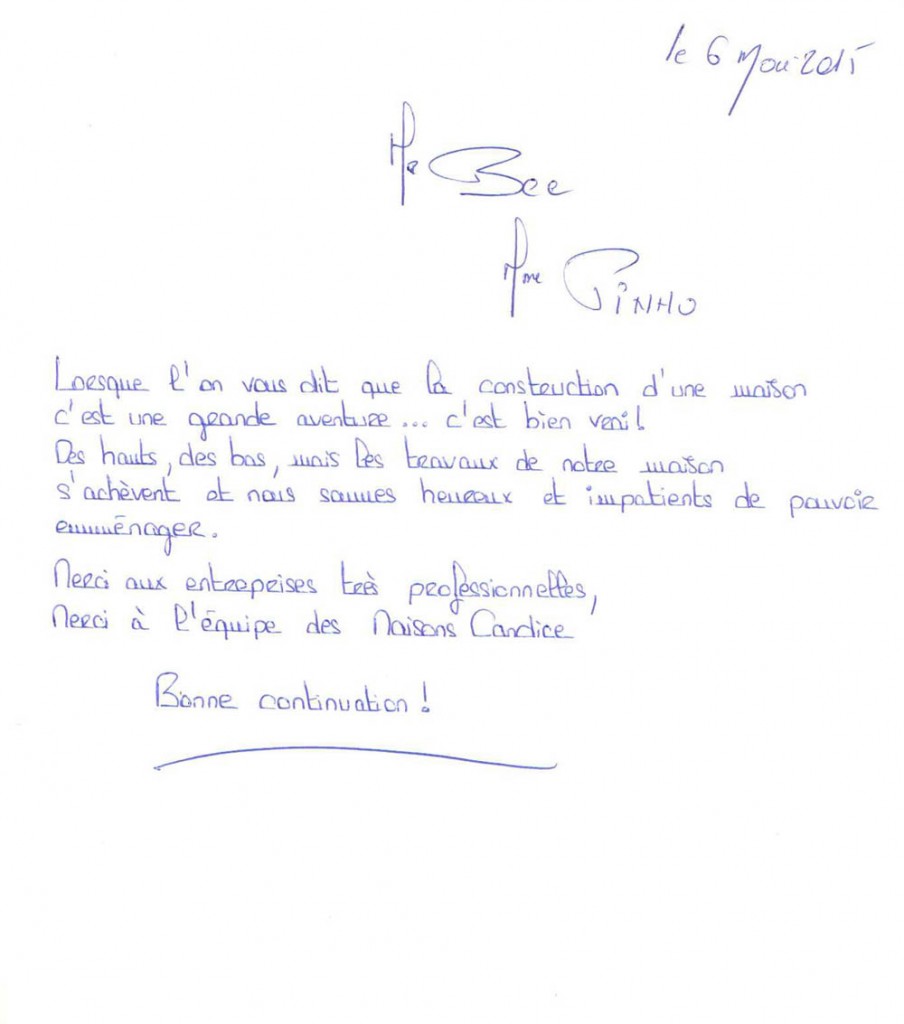 le 6 Mai 2015
Mr Bee
Mme PINHO
Lorsque l'on vous dit que la construction d'une maison
c'est une grande aventure... c'est bien vrai!
Des hauts, des bas, mais les travaux de notre maison
s'achèvent et nous sommes heureux et impatients de pouvoir
emménager.
Merci aux entreprises très professionnelles,
Merci à l'équipe des Maisons Candice
Bonne continuation!